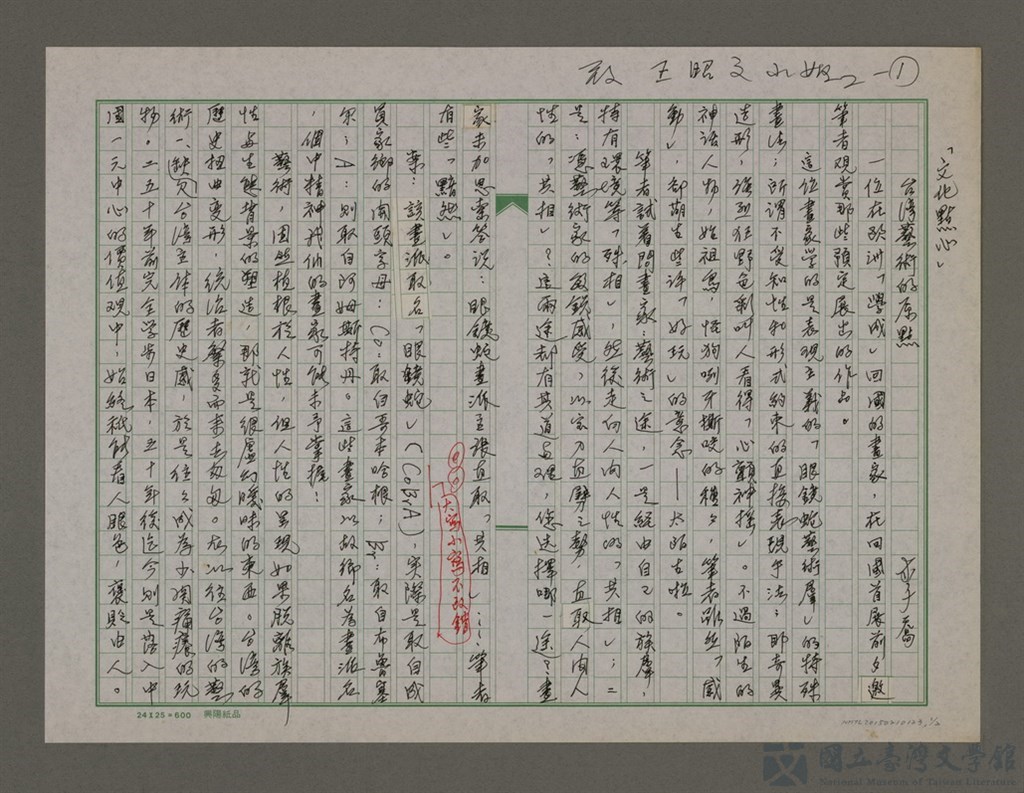 致 王昭文小姐 —①
「文化點心」
台灣藝術的原點
一位在歐洲「學成」回國的畫家，在回國首展前夕邀
筆者觀賞那些預定展出的作品。
這位畫家學的是表現主義的「眼鏡蛇藝術羣」的特殊
畫法；所謂不受知性和形式約束的直接表現手法；那奇異
造形，強烈狂野色彩叫人看得「心顫神搖」。不過陌生的
神話人物，始祖鳥，怪狗咧牙撕咬的
動」，却萌生些許「好玩」的意念——太陌生啦。
筆者試着問畫家：藝術之途，一是經由自己的族羣，
特有環境等「殊相」，然後走向人間人性的「共相」；二
是：憑藝術家的敏銳感受，以宏刀直劈之勢，直取人間人
性的「共相」？這兩途都有其道理，您選擇哪一途？畫
家未加思索答說：眼鏡蛇畫派主張直取「共相」……筆者
有些「黯然」。
案：該畫派取名「眼鏡蛇」（CoBrA），實際是取自成
員家鄉的開頭字母：Co：取自哥本哈根；Br：取自布魯塞
尔；A：則取自阿姆斯特丹。這些畫家以故鄉名為畫派名
，個中精神我們的畫家可能未予掌握！
藝術，固然植根於人性，但人性的呈現如果脫離族羣
性與生態背景的塑造，那就是很虛幻曖昧的東西。台灣的
歷史扭曲變形，統治者繁多而來去匆匆。所以往台灣的藝
術一、缺乏台灣主体的歷史感，於是往往成為少関痛癢的玩
物。二五十年前完全学步日本，五十年後迄今則是落入中
國一元中心的價值观中，始終秪能看人眼色，褒貶由人。
大寫小寫不改錯
24×25＝600 興陽紙品
國立臺灣文學館
National Museum of Taiwan Literature